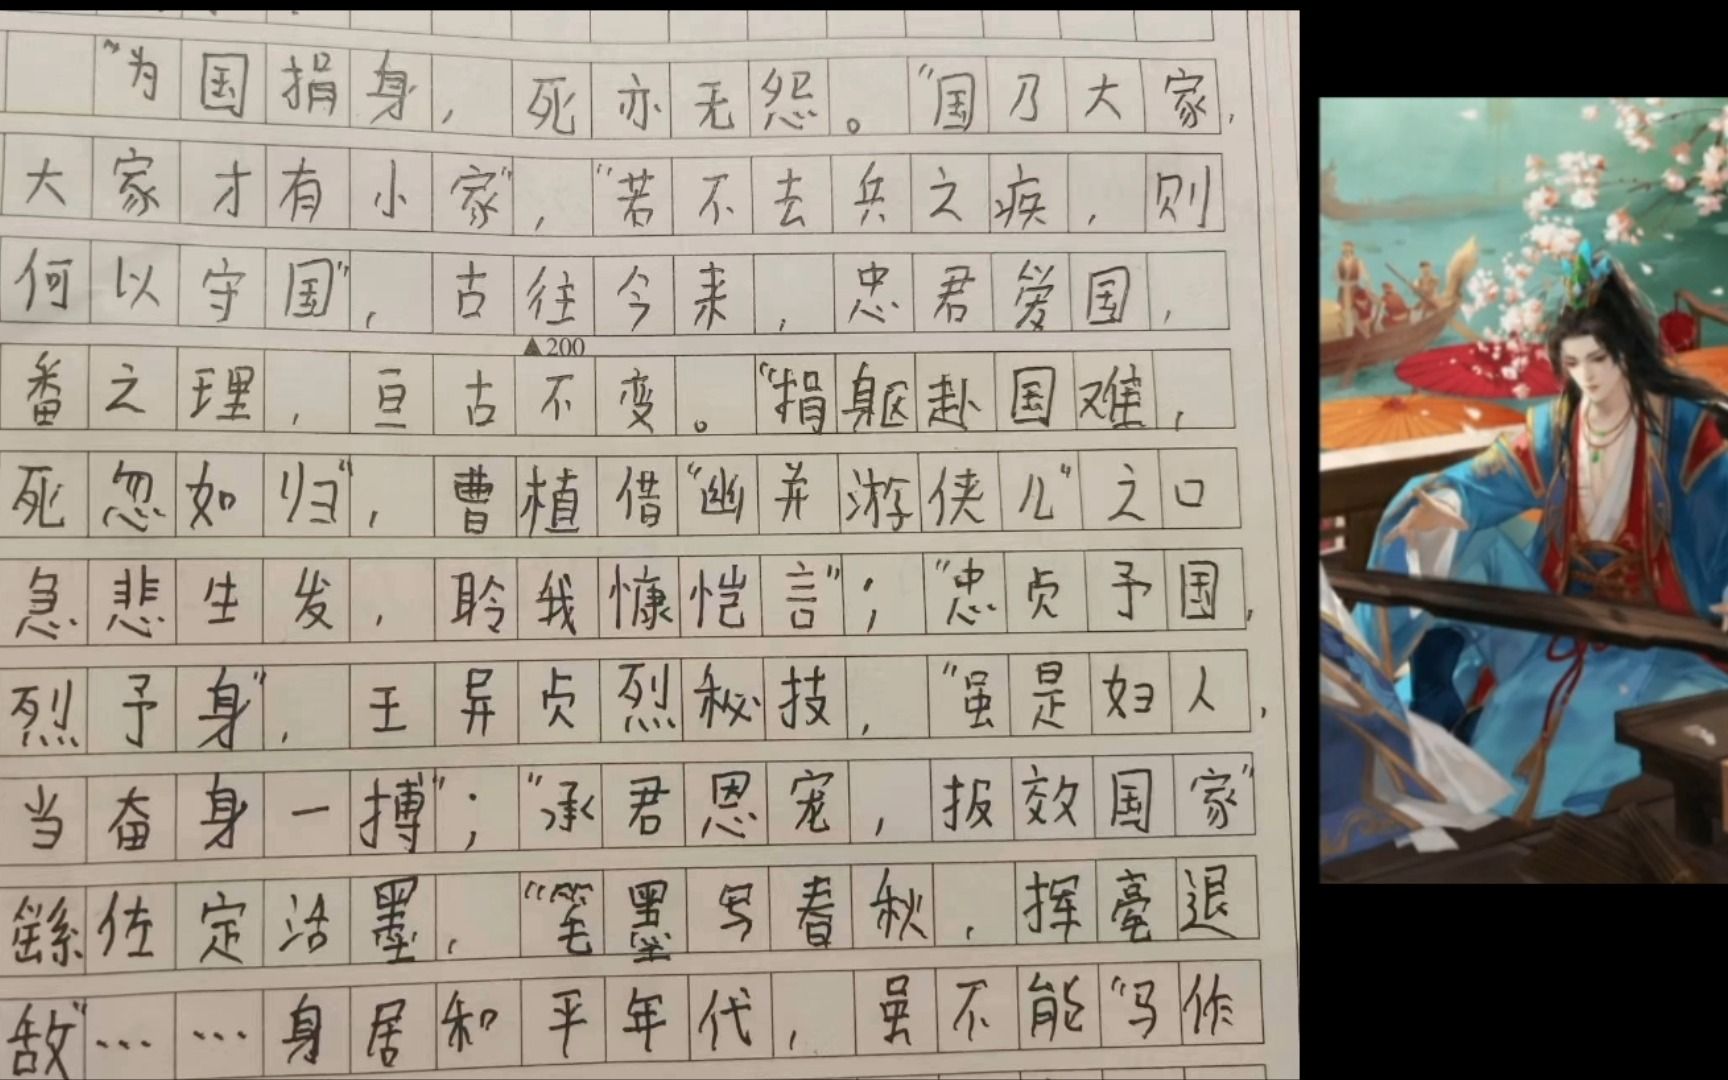 “为国捐身，死亦无怨。“国乃大家，
大家才有小家”，“若不去兵之疾，则
何以守国”，古往今来，忠君爱国，
▲200
番之理，亘古不变。“捐躯赴国难，
死忽如归”，曹植借“幽并游侠儿”之口
急悲生发，聆我慷恺言”；“忠贞予国，
烈予身”，王异贞烈秘技，“虽是妇人，
当奋身一搏”；“承君恩宠，报效国家”
繇佐定沾墨，“笔墨写春秋，挥毫退
敌”……身居和平年代，虽不能“写作